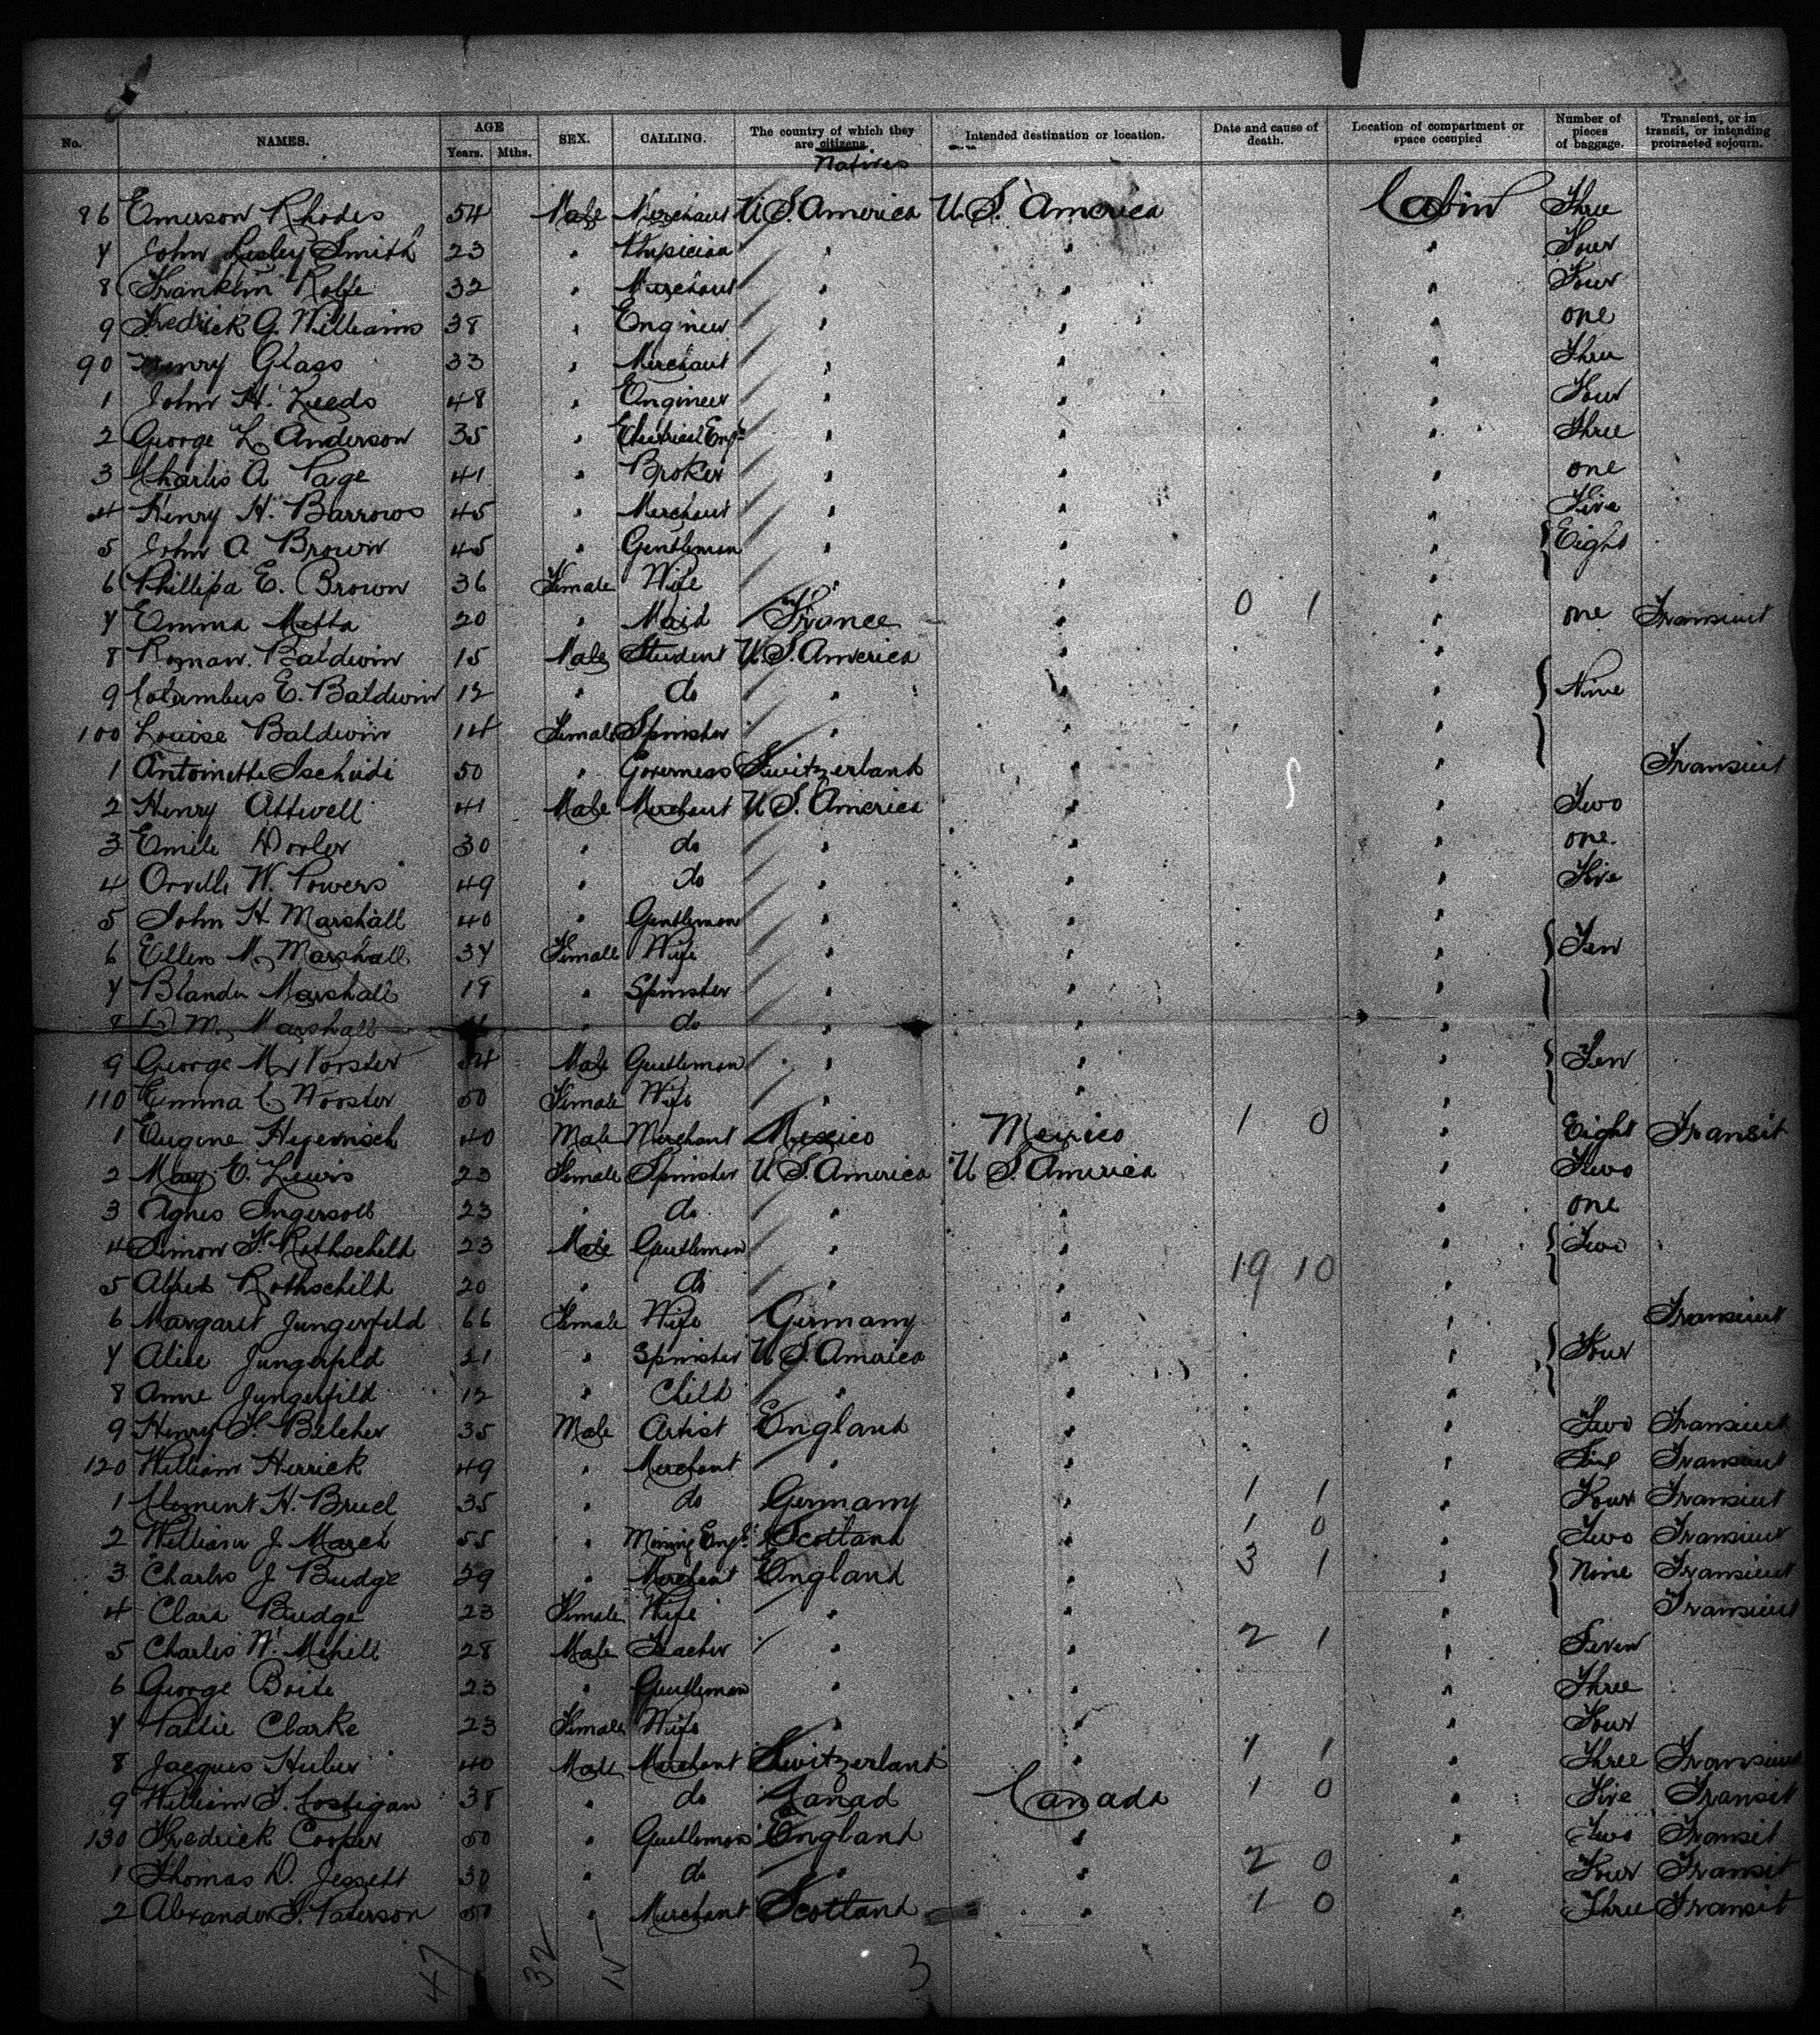 No. NAMES. AGE Years. Mths. SEX. CALLING. The country of which they are citizens. Natives Intended destination or location. Date and cause of death. Location of compartment or space occupied Number of pieces of baggage. Transient, or in transit, or intending protracted sojourn.
86 Emerson Rhodes 54 Male Merchant U.S. America U.S. America Cabin Three
7 John Lesley Smith 23 " " " " Four
8 Franklin Rolfe 32 " Merchant " " " Four
9 Fredrick G. Williams 38 " Engineer " " " one
90 Henry Glass 33 " Merchant " " " Three
1 John H. Leeds 48 " Engineer " " " Four
2 George L. Anderson 35 " Electrical Engr " " " Three
3 Charles A Page 41 " Broker " " " one
4 Henry H. Barrows 45 " Merchant " " " Five
5 John A Brown 45 " Gentleman " " " Eight
6 Phillipa E. Brown 36 Female Wife " " "
7 Emma Motta 20 " Maid France " 0 1 " one Transient
8 Roman Baldwin 15 Male Student U.S. America " "
9 Columbus E. Baldwin 12 " do " " " Nine
100 Louise Baldwin 14 Female Spinster " " "
1 Antoinette Ischudi 50 " Governess Switzerland " " Transient
2 Henry Attwell 41 Male Merchant U.S. America " " Two
3 Emile 30 " do " " " one
4 Orville W. Powers 49 " do " " " Five
5 John H. Marshall 40 " Gentleman " " "
6 Ellen M. Marshall 37 Female Wife " " " Ten
7 Marshall 19 " Spinster " " "
8 M. Marshall " do " " "
9 George M. Worster 54 Male Gentleman " " " Ten
110 Emma C. Wooster 50 Female Wife " " "
1 Eugene 40 Male Merchant Mexico Mexico 1 0 " Eight Transit
2 Mary E. Lewis 23 Female Spinster U.S. America U.S. America " Two
3 Agnes Ingersoll 23 " do " " " one
4 Simon F. Rothschild 23 Male Gentleman " " " Two
5 Alfred Rothschild 20 " do " " 19 10 "
6 Margaret Jungerfeld 66 Female Wife Germany " " Transient
7 Alice Jungerfeld 21 " Spinster U.S. America " " Four
8 Anne Jungerfeld 12 " Child " " "
9 Henry S. Belcher 35 Male Artist England " " Two Transient
120 William Herrick 49 " Merchant " " " Transient
1 Clement H. Bruel 35 " do Germany " 1 1 " Four Transient
2 William J. March 55 " Mining Engr. Scotland " 1 0 " Two Transient
3 Charles J. Budge 39 " Merchant England " 3 1 " Nine Transient
4 Clara Budge 23 Female Wife " " " Transient
5 Charles W. Mihill 28 Male Teacher " " 2 1 " Seven
6 George Boite 23 " Gentleman " " " Three
7 Pattie Clarke 23 Female Wife " " " Four
8 Jacques Huber 40 Male Merchant Switzerland " 1 1 " Three Transient
9 William F. Costigan 38 " do Canad Canada 1 0 " Five Transit
130 Fredrick Cooper 50 " Gentleman England " " Two Transit
1 Thomas D. Jessett 30 " do " " 2 0 " Four Transit
2 Alexander F. Paterson 50 " Merchant Scotland " 1 0 " Three Transit
47 32 15 3